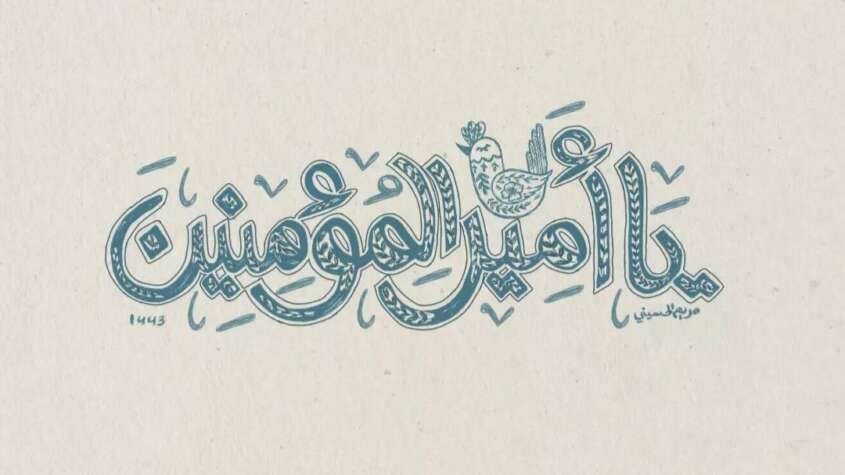 يَا أَمِيرَ المُؤمِنِينَ
مريم الحسيني
١٤٤٣